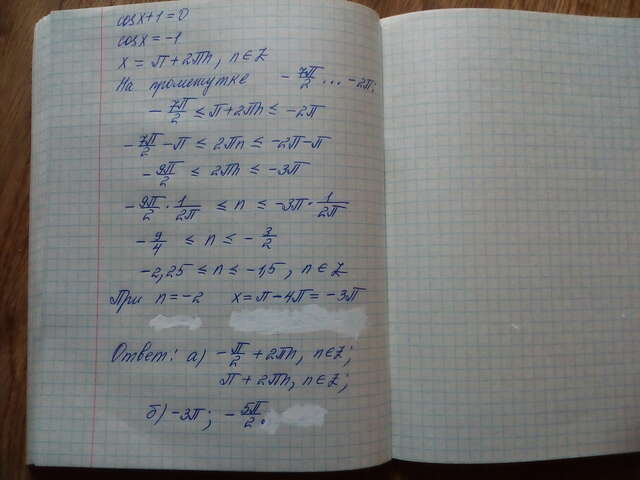 cosx+1=0
cosx=-1
x = π+2πn, n∈Z
На промежутке -7π/2 ... -2π:
-7π/2 ≤ π+2πn ≤ -2π
-7π/2 -π ≤ 2πn ≤ -2π-π
-9π/2 ≤ 2πn ≤ -3π
-9π/2 · 1/2π ≤ n ≤ -3π · 1/2π
-9/4 ≤ n ≤ -3/2
-2,25 ≤ n ≤ -1,5, n∈Z
При n=-2 x=π-4π=-3π
Ответ: а) -π/2 +2πn, n∈Z;
π+2πn, n∈Z;
б) -3π; -5π/2.